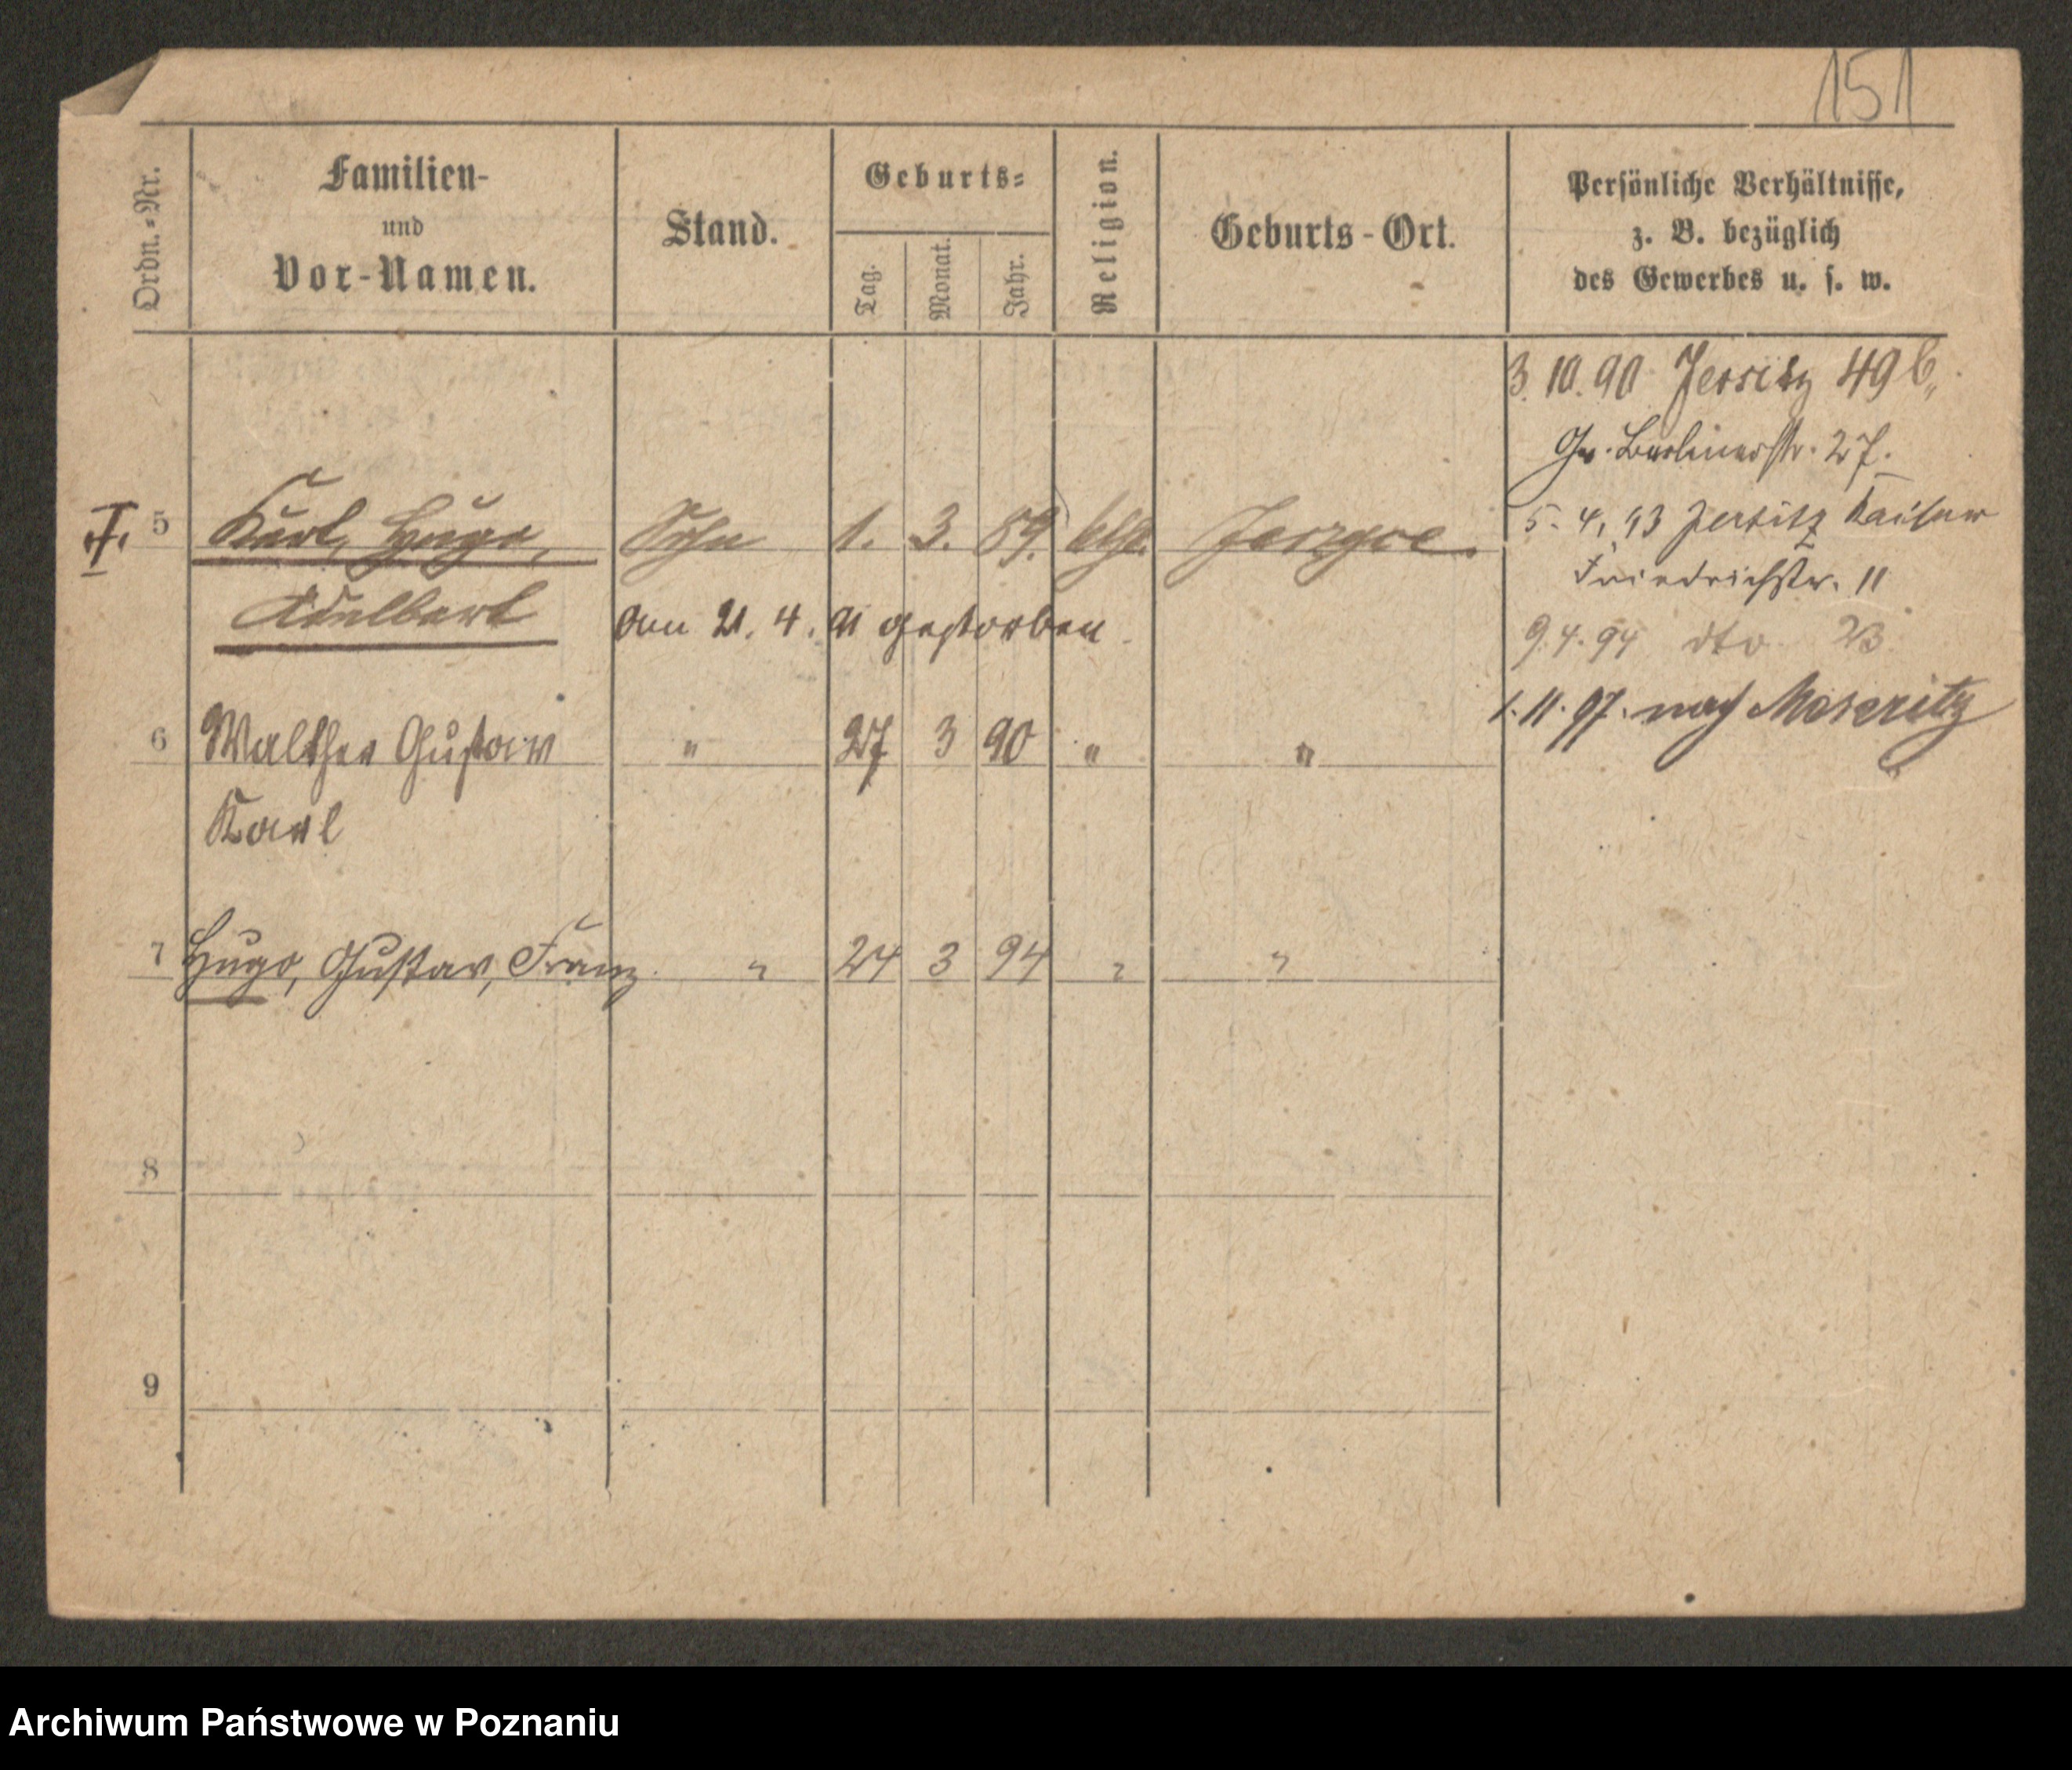 151
Ordn.=Nr.
Familien-
und
Vor-Namen.
Stand.
Geburts=
Tag.
Monat.
Jahr.
Religion.
Geburts-Ort.
Persönliche Verhältnisse,
z. B. bezüglich
des Gewerbes u. s. w.
3. 10. 90 Jersitz 49 b,
Gr. Berlinerstr. 27.
5 Karl, Hugo, Sohn 1. 3. 89.
5. 4. 93 Jersitz Kaiser
Friedrichstr. 11
Adelbert
am 21. 4. 91 gestorben.
9.4.94 dto 23
1.11.97. nach Meseritz
6 Walther Gustav " 27 3 90 " "
Karl
7 Hugo, Gustav, Franz. " 24 3 94 " "
8
9
Archiwum Państwowe w Poznaniu